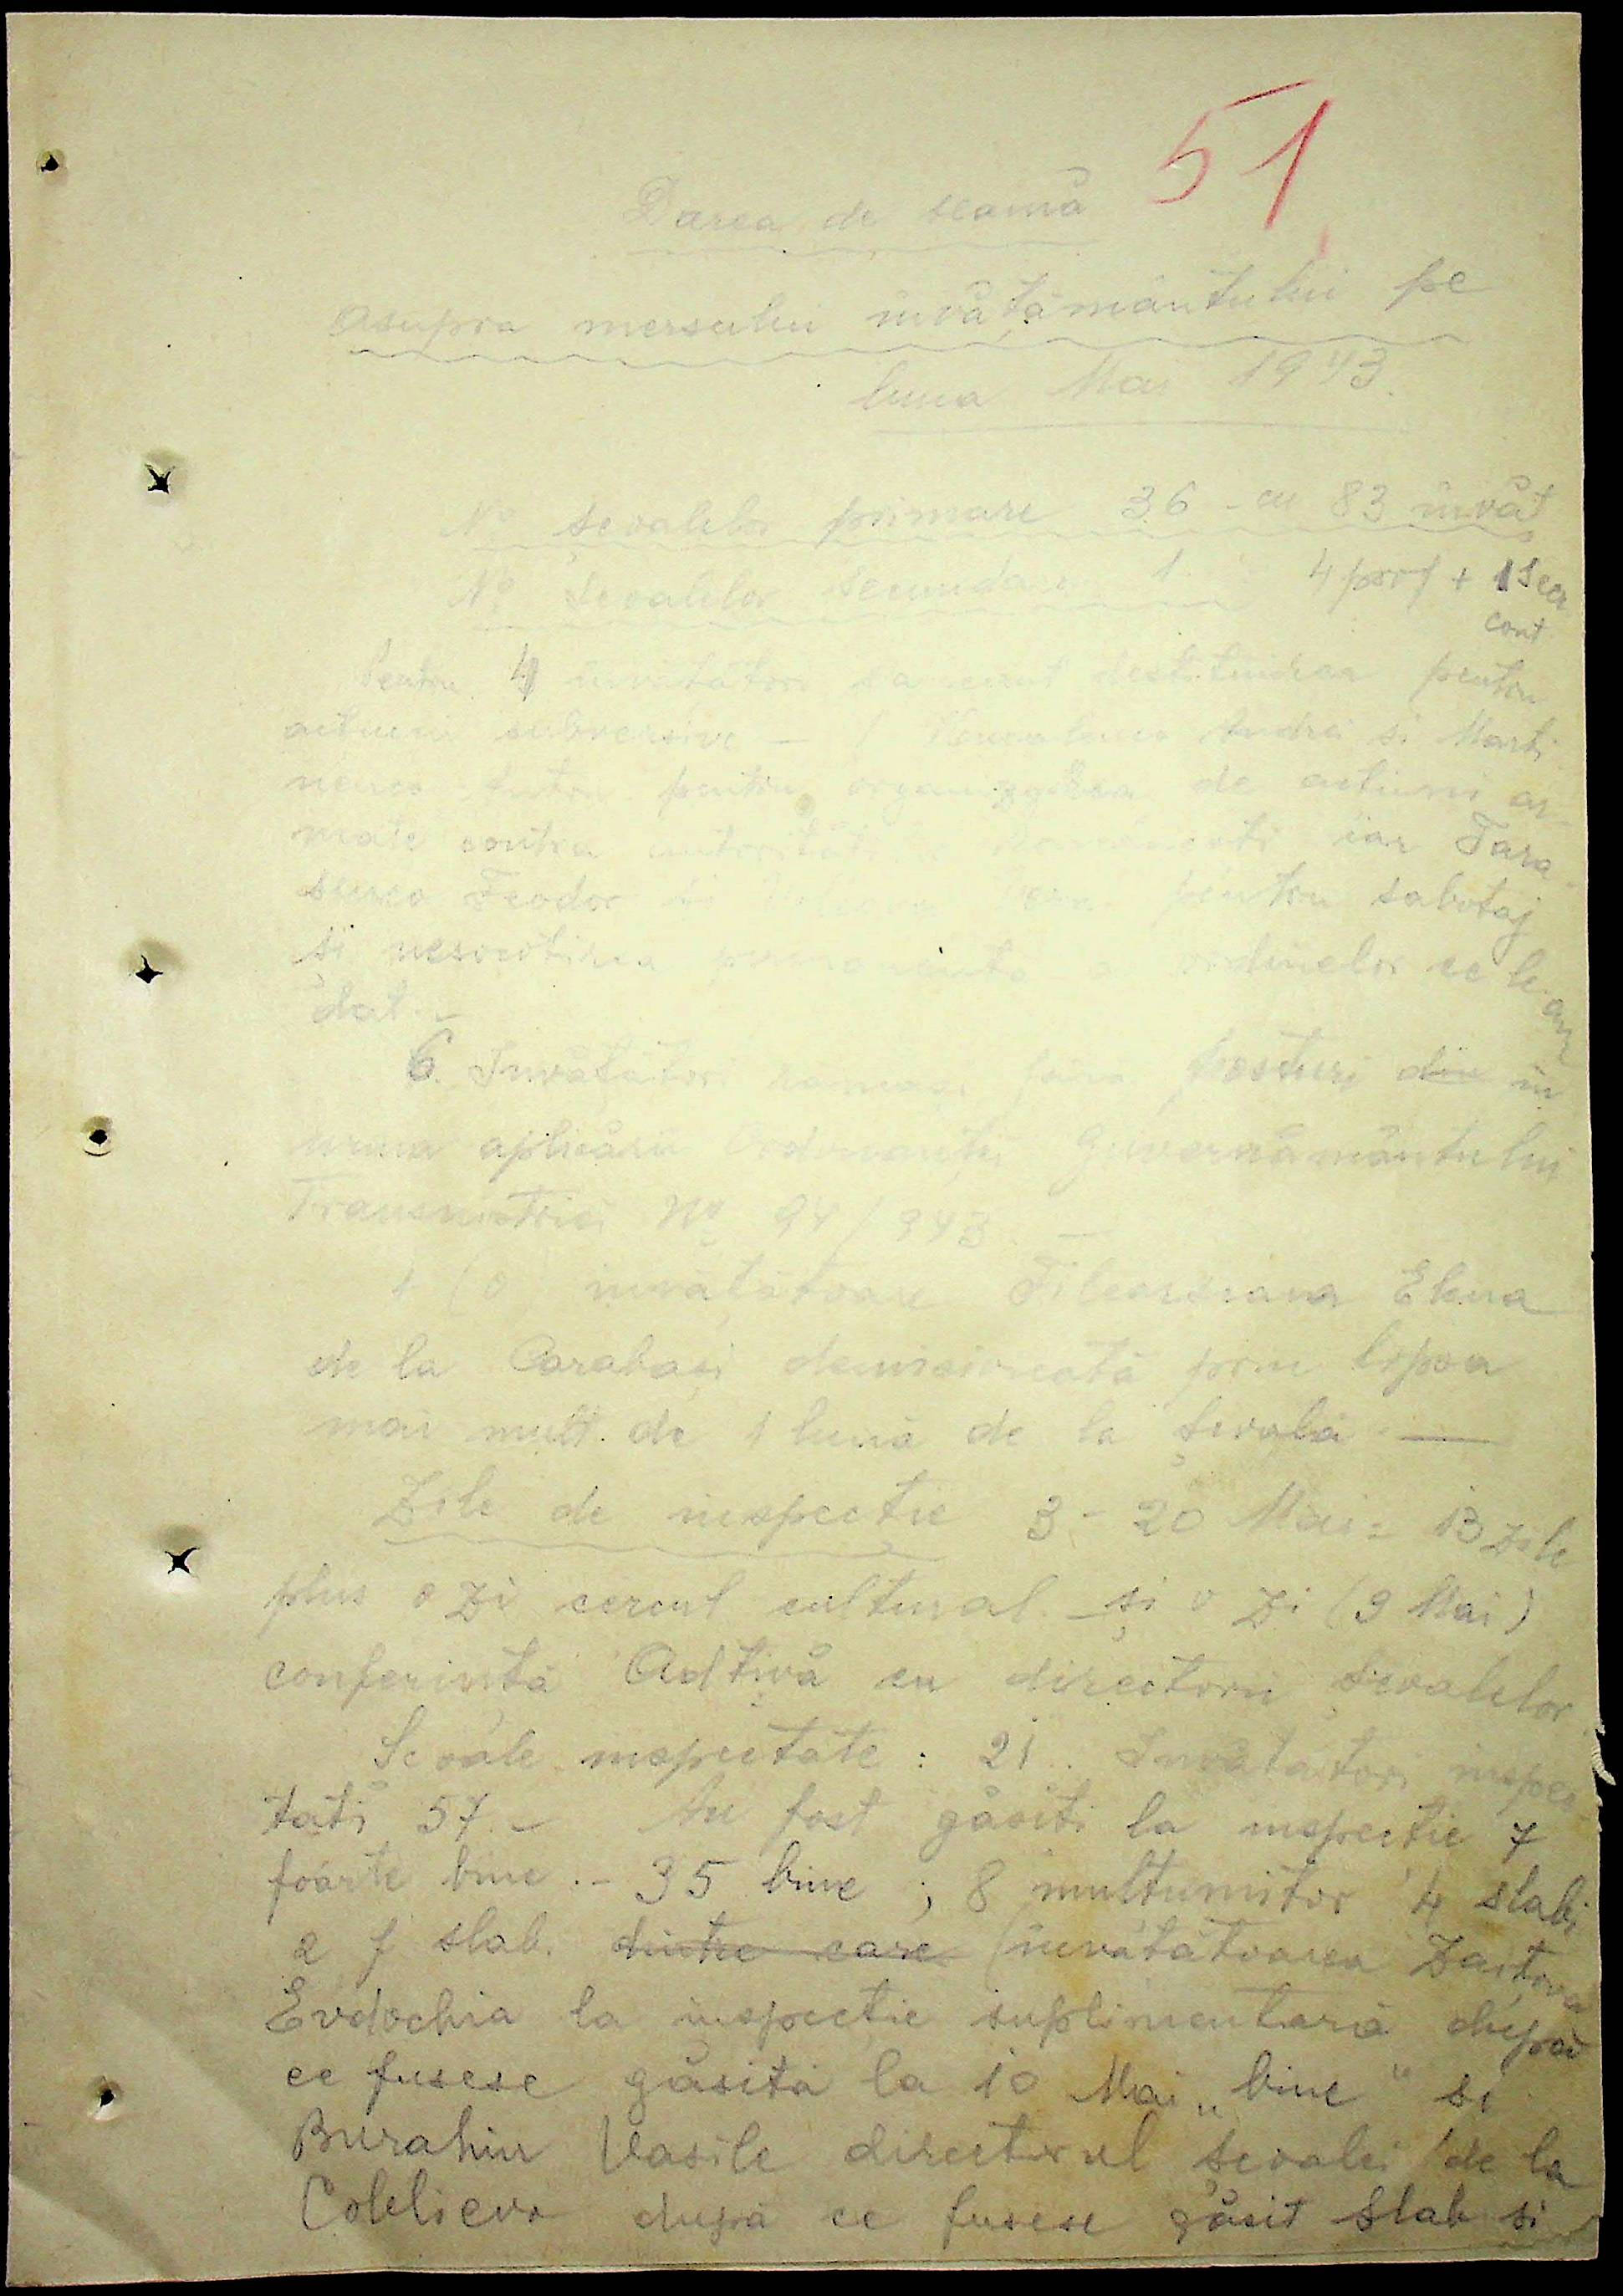 51
Darea de seamă
asupra mersului învățământului pe
luna Mai 1943.
No școalelor primare 36 - cu 83 învăț
No școalelor Secundare 1 4 prof + 1 Secr
cont
Pentru 4 învătători s'a cerut destituirea pentru
actiuni subversive - Andrei si Marti
nenco pentru organizarea de actiuni ar
mate contra iar Tara
senco Feodor si pentru sabotaj
si nesocotirea permanenta a ordinelor ce le am
dat. -
6. Învătători rămași fără posturi din în
urma aplicării Ordonanței Guvernământului
Transnistriei No 94/943. -
1 (o) învățătoare Elena
de la Carabași demisionată prin lipsa
mai mult de 1 lună de la școală —
Zile de inspectie 3 - 20 Mai = 13 zile
plus o zi cercul cultural și o zi (9 Mai)
conferință Adtivă cu directorii școalelor
Scoale inspectate : 21. Învătători inspec
tati 57. - Au fost găsiti la inspectie 7
foarte bine. - 35 bine ; 8 multumitor 4 slabi
2 f slab. dintre care (învătătoarea Zaițova
Evdochia la inspectie suplimentară după
ce fusese găsită la 10 Mai „bine" si
Burahin Vasile directorul scoalei de la
Coblievo după ce fusese găsit slab si